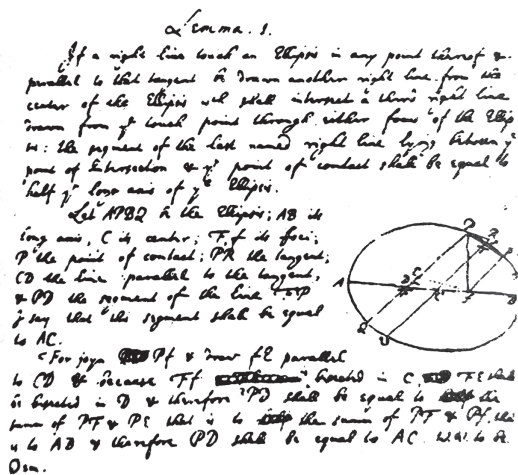 Lemma. 1.
If a right line touch an Ellipsis in any point thereof &
parallel to that tangent be drawn another right line from the
center of the Ellipsis wch shall intersect a third right line
drawn from ye touch point through either focus of the Ellip
sis: the segment of the last named right line lying between ye
point of intersection & ye point of contact shall be equal to
half ye long axis of ye Ellipsis.
Let APBQ be the Ellipsis; AB its
long axis, C its center; F, f its foci;
P the point of contact; PR the tangent;
CD the line parallel to the tangent,
& PD the segment of the line FP
I say that this segment shall be equal
to AC.
For joyn Pf & draw fE parallel
to CD & because Ff is bisected in C, FE shall
be bisected in D & therefore 2PD shall be equal to the
summ of PF & PE that is to the summ of PF & Pf, that
is to AB & therefore PD shall be equal to AC. W.W. to be
Dem.
P
R
A
D
C
F
B
Q